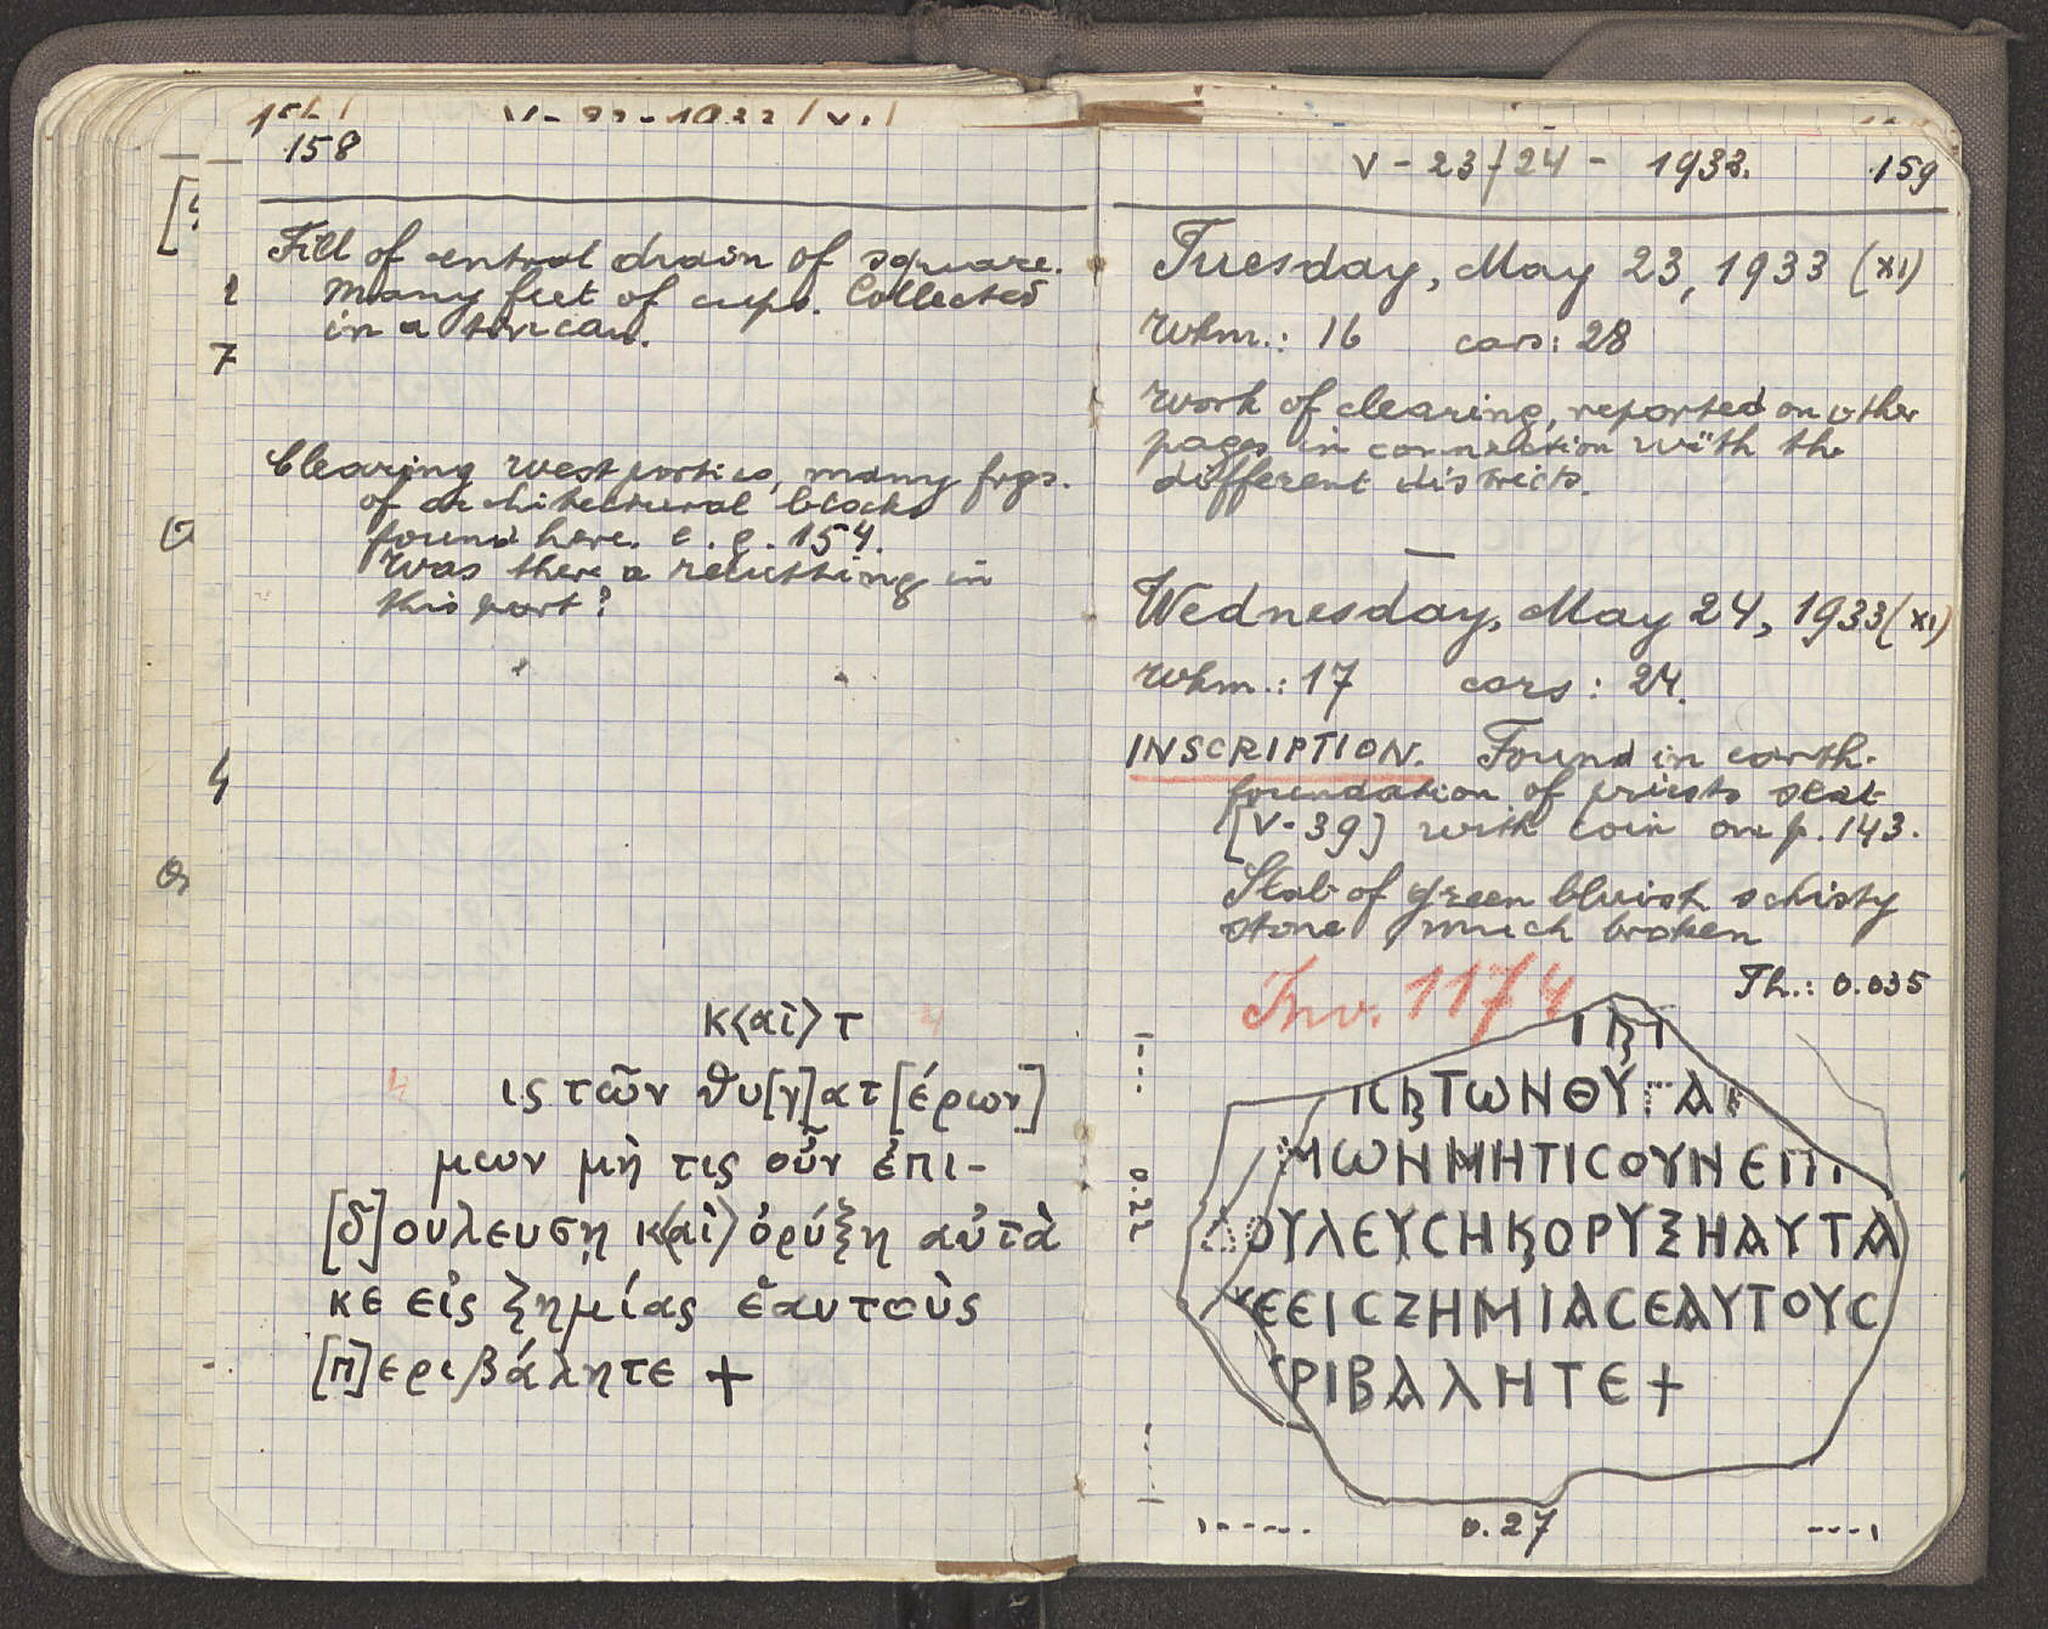 158
Fill of central drain of square.
Many feet of cups. Collected
in a tin can.
Clearing west portico, many frgs.
of architectural blocks
found here. e.g. 154.
Was there a resetting in
this part?
κ<αὶ> τ
ις τῶν θυ[γ]ατ[έρων]
μων μὴ τις οὖν ἐπι-
[δ]ουλευσῃ κ<αὶ> ὀρύξη αὐτὰ
κε εἰς ζημίας ἑαυτοὺς
[π]εριβάλητε +
V - 23/24 - 1933. 159
Tuesday, May 23, 1933 (XI)
Wkm.: 16 cars: 28
Work of clearing, reported on other
pages in connection with the
different districts.
—
Wednesday, May 24, 1933 (XI)
Wkm.: 17 cars: 24.
INSCRIPTION. Found in earth.
foundation of priests seat
[V-39] with coin on p. 143.
Slab of green bluish schisty
stone, much broken
Inv. 1174 Th.: 0.035
ΤΩΝΘΥΓΑ
ΜΩΝΜΗΤΙϹΟΥΝΕΠΙ
ΟΥΛΕΥϹΗϏΟΡΥΞΗΑΥΤΑ
ΚΕΕΙϹΖΗΜΙΑϹΕΑΥΤΟΥϹ
ΡΙΒΑΛΗΤΕ +
0.22
0.27